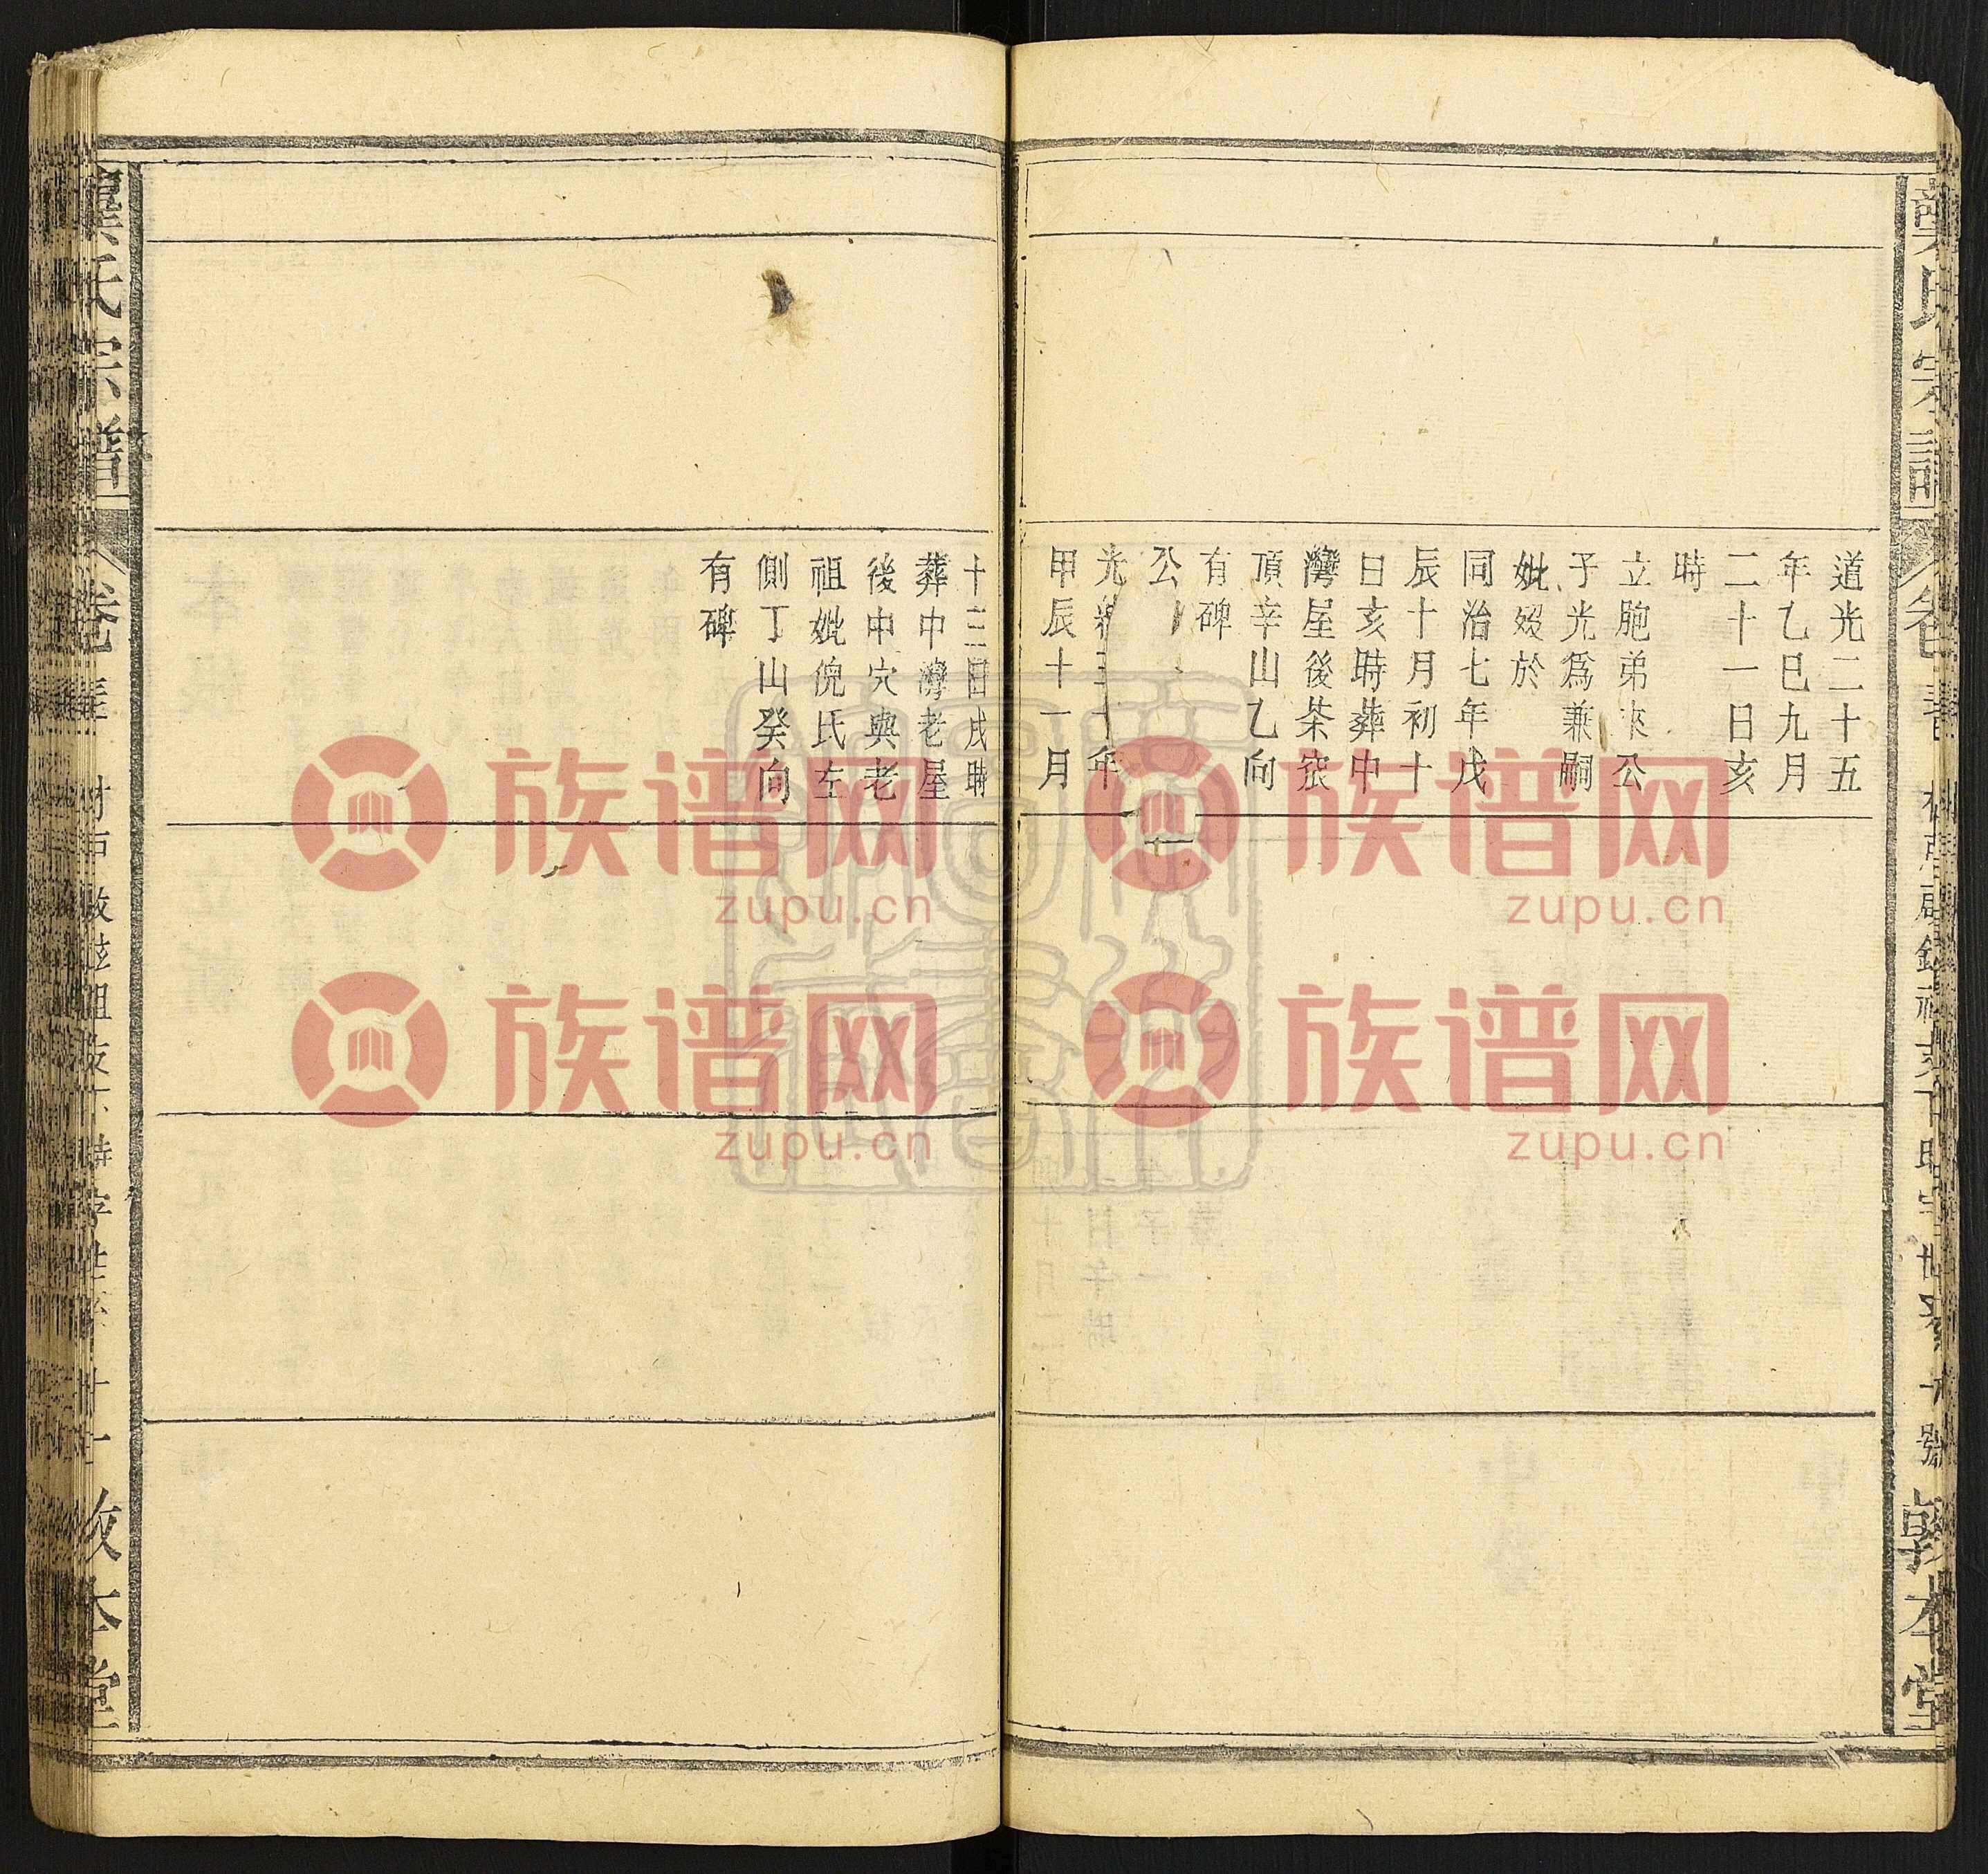 道光二十五
年乙巳九月
二十一日亥
時
立胞弟來公
子光爲兼嗣
妣歿於
同治七年戊
辰十月初十
日亥時葬中
灣屋後茶窊
頂辛山乙向
有碑
公
光緒三十年
甲辰十一月
十三日戌時
葬中灣老屋
後中穴與老
祖妣倪氏左
側丁山癸向
有碑
龔氏宗譜
卷
敦本堂
族谱网
zupu.cn
族谱网
zupu.cn
族谱网
zupu.cn
族谱网
zupu.cn